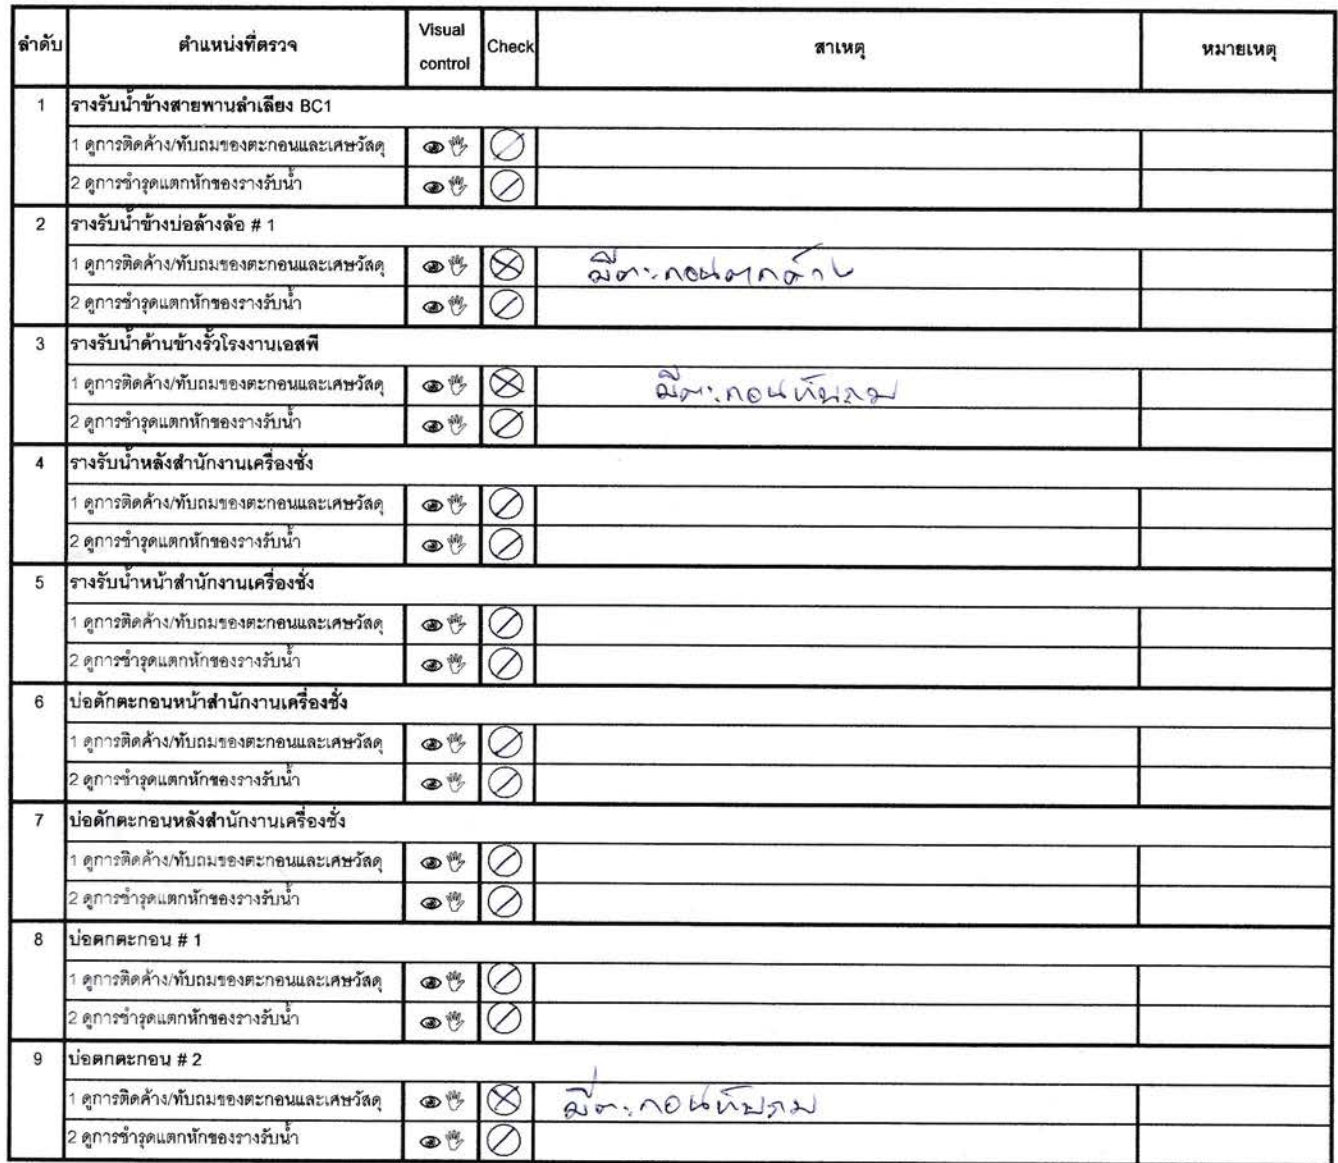 ลำดับ ตำแหน่งที่ตรวจ Visual control Check สาเหตุ หมายเหตุ
1 รางรับน้ำข้างสายพานลำเลียง BC1
1 ดูการติดค้าง/ทับถมของตะกอนและเศษวัสดุ
2 ดูการชำรุดแตกหักของรางรับน้ำ
2 รางรับน้ำข้างบ่อล้างล้อ # 1
1 ดูการติดค้าง/ทับถมของตะกอนและเศษวัสดุ มีตะกอนตกค้าง
2 ดูการชำรุดแตกหักของรางรับน้ำ
3 รางรับน้ำด้านข้างรั้วโรงงานเอสพี
1 ดูการติดค้าง/ทับถมของตะกอนและเศษวัสดุ มีตะกอนทับถม
2 ดูการชำรุดแตกหักของรางรับน้ำ
4 รางรับน้ำหลังสำนักงานเครื่องชั่ง
1 ดูการติดค้าง/ทับถมของตะกอนและเศษวัสดุ
2 ดูการชำรุดแตกหักของรางรับน้ำ
5 รางรับน้ำหน้าสำนักงานเครื่องชั่ง
1 ดูการติดค้าง/ทับถมของตะกอนและเศษวัสดุ
2 ดูการชำรุดแตกหักของรางรับน้ำ
6 บ่อดักตะกอนหน้าสำนักงานเครื่องชั่ง
1 ดูการติดค้าง/ทับถมของตะกอนและเศษวัสดุ
2 ดูการชำรุดแตกหักของรางรับน้ำ
7 บ่อดักตะกอนหลังสำนักงานเครื่องชั่ง
1 ดูการติดค้าง/ทับถมของตะกอนและเศษวัสดุ
2 ดูการชำรุดแตกหักของรางรับน้ำ
8 บ่อตกตะกอน # 1
1 ดูการติดค้าง/ทับถมของตะกอนและเศษวัสดุ
2 ดูการชำรุดแตกหักของรางรับน้ำ
9 บ่อตกตะกอน # 2
1 ดูการติดค้าง/ทับถมของตะกอนและเศษวัสดุ มีตะกอนทับถม
2 ดูการชำรุดแตกหักของรางรับน้ำ